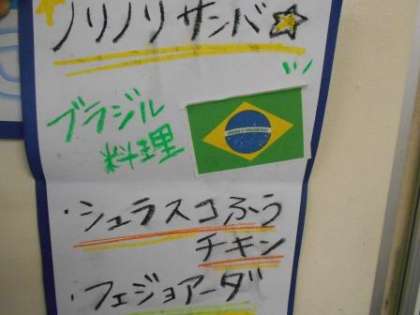 ノリノリサンバ☆
ブラジル
料理
・シュラスコふう
チキン
・フェジョアーダ